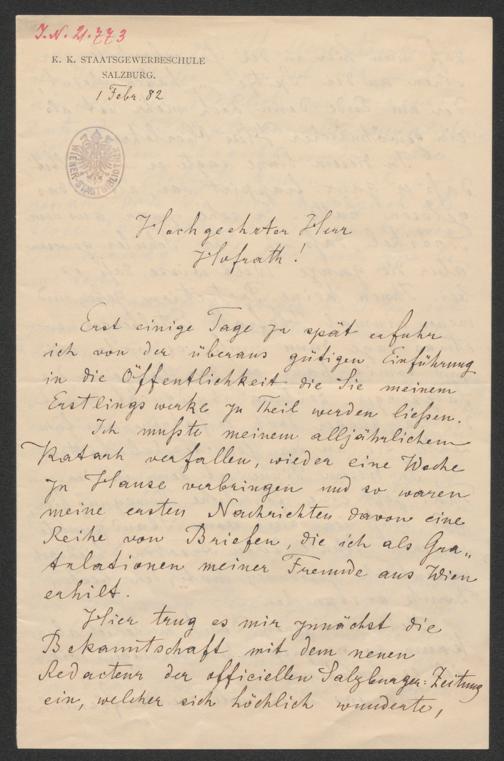 I.N. 21.773
K. K. STAATSGEWERBESCHULE
SALZBURG.
1 Febr. 82
WIENER-STADTBIBLIOTHEK
Hochgeehrter Herr
Hofrath!
Erst einige Tage zu spät erfuhr
ich von der überaus gütigen Einführung
in die Öffentlichkeit die Sie meinem
Erstlingswerke zu Theil werden ließen.
Ich mußte meinem alljährlichem
Katarh verfallen, wieder eine Woche
zu Hause verbringen und so waren
meine ersten Nachrichten davon eine
Reihe von Briefen, die ich als Gra„
tulationen meiner Freunde aus Wien
erhilt.
Hier trug es mir zunächst die
Bekanntschaft mit dem neuen
Redacteur der officiellen Salzburger-Zeitung
ein, welcher sich höchlich wunderte,